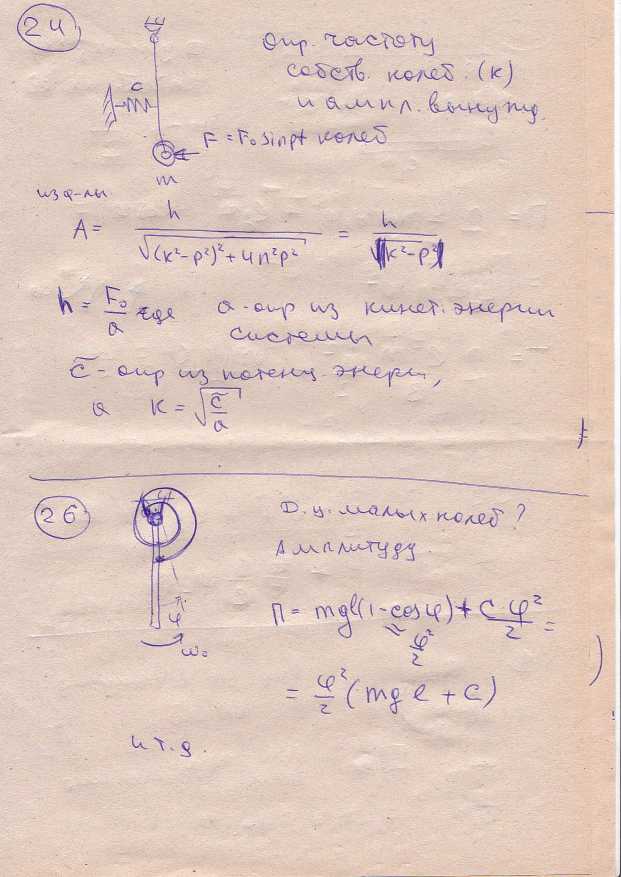 24
опр. частоту
собств. колеб. (к)
и ампл. вынужд.
колеб
c
F = F₀ sin pt
m
из ф-лы
A = h / √((k²-p²)²+4n²p²) = h / |k²-p²|
h = F₀/a где a - опр из кинет. энергии
системы
c̃ - опр из потенц. энерги,
а k = √(c̃/a)
26
Д.у. малых колеб?
Амплитуду.
φ
ω₀
П = mgl(1-cosφ) + c·φ²/2 =
≈ φ²/2
= φ²/2 (mgl + c)
и т.д.